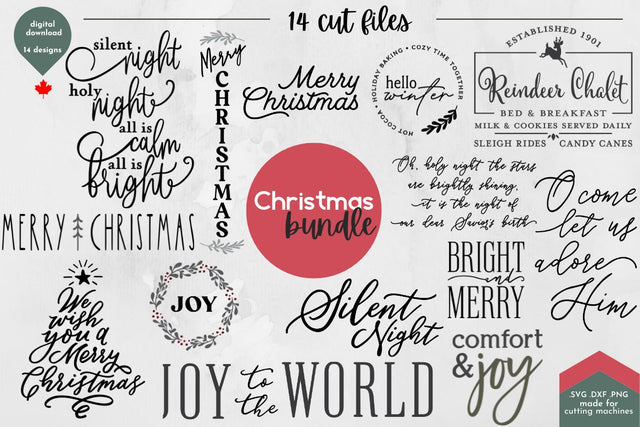 digital
download
14 designs
14 cut files
silent
night
holy
night
all is
calm
all is
bright
Merry
CHRISTMAS
Merry
Christmas
HOLIDAY BAKING • COZY TIME TOGETHER
HOT COCOA
hello
winter
ESTABLISHED 1901
Reindeer Chalet
BED & BREAKFAST
MILK & COOKIES SERVED DAILY
SLEIGH RIDES CANDY CANES
Christmas
bundle
Oh, holy night the stars
are brightly shining,
it is the night of
our dear Savior's birth
O come
let us
adore
Him
MERRY CHRISTMAS
BRIGHT
and
MERRY
We
wish
you a
Merry
Christmas
JOY
Silent
Night
comfort
& joy
JOY to the WORLD
.SVG .DXF .PNG
made for
cutting machines